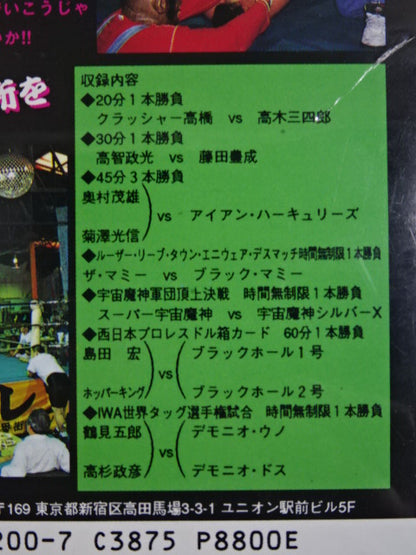 いこうじゃ
か!!
術を
収録内容
◆20分1本勝負
クラッシャー高橋 vs 高木三四郎
◆30分1本勝負
高智政光 vs 藤田豊成
◆45分3本勝負
奥村茂雄
vs アイアン・ハーキュリーズ
菊澤光信
◆ルーザー・リーブ・タウン・エニウェア・デスマッチ時間無制限1本勝負
ザ・マミー vs ブラック・マミー
◆宇宙魔神軍団頂上決戦 時間無制限1本勝負
スーパー宇宙魔神 vs 宇宙魔神シルバーX
◆西日本プロレスドル箱カード 60分1本勝負
島田 宏 ブラックホール1号
vs
ホッパーキング ブラックホール2号
◆IWA世界タッグ選手権試合 時間無制限1本勝負
鶴見五郎 デモニオ・ウノ
vs
高杉政彦 デモニオ・ドス
〒169 東京都新宿区高田馬場3-3-1 ユニオン駅前ビル5F
200-7 C3875 P8800E